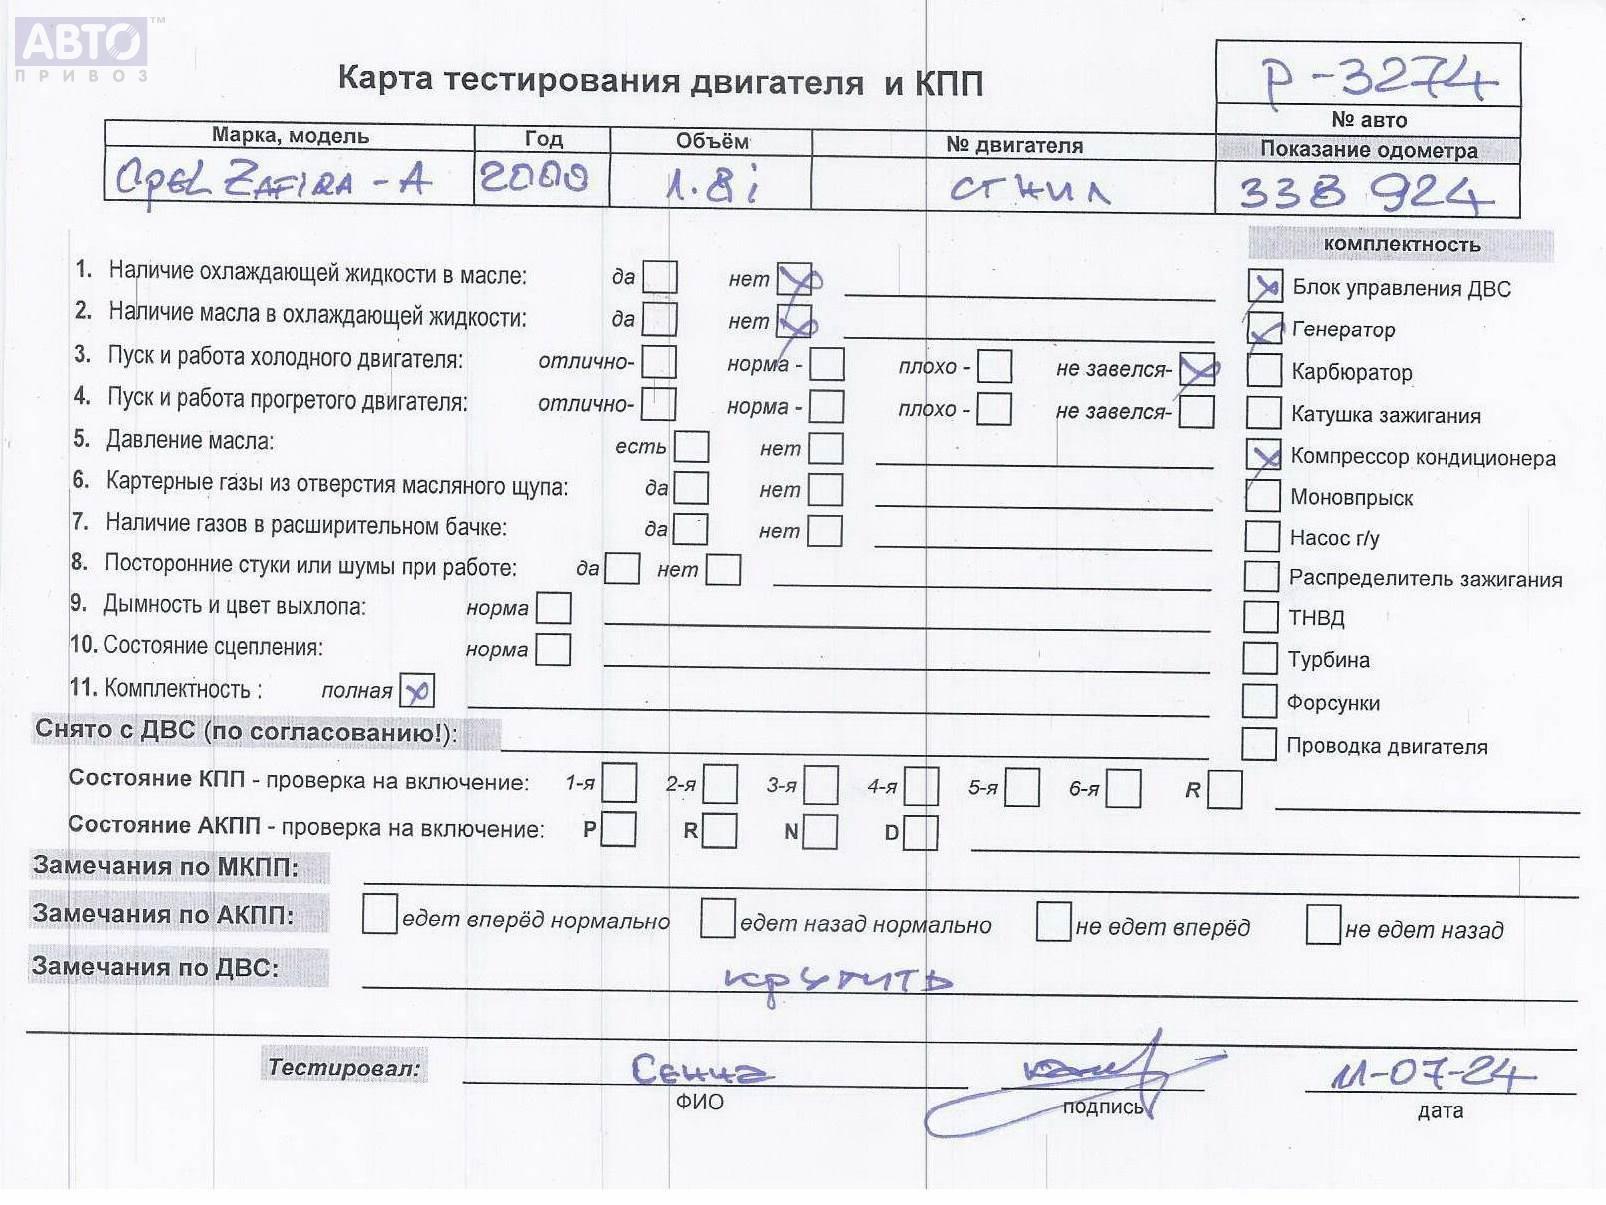 АВТО™
ПРИВОЗ
Карта тестирования двигателя и КПП
P-3274
№ авто
Марка, модель Год Объём № двигателя Показание одометра
Opel Zafira-A 2000 1.8i сгнил 338 924
комплектность
1. Наличие охлаждающей жидкости в масле: да нет
2. Наличие масла в охлаждающей жидкости: да нет
3. Пуск и работа холодного двигателя: отлично- норма - плохо - не завелся-
4. Пуск и работа прогретого двигателя: отлично- норма - плохо - не завелся-
5. Давление масла: есть нет
6. Картерные газы из отверстия масляного щупа: да нет
7. Наличие газов в расширительном бачке: да нет
8. Посторонние стуки или шумы при работе: да нет
9. Дымность и цвет выхлопа: норма
10. Состояние сцепления: норма
11. Комплектность : полная
Блок управления ДВС
Генератор
Карбюратор
Катушка зажигания
Компрессор кондиционера
Моновпрыск
Насос г/у
Распределитель зажигания
ТНВД
Турбина
Форсунки
Проводка двигателя
Снято с ДВС (по согласованию!):
Состояние КПП - проверка на включение: 1-я 2-я 3-я 4-я 5-я 6-я R
Состояние АКПП - проверка на включение: P R N D
Замечания по МКПП:
Замечания по АКПП: едет вперёд нормально едет назад нормально не едет вперёд не едет назад
Замечания по ДВС: крутить
Тестировал: 11-07-24
ФИО подпись дата